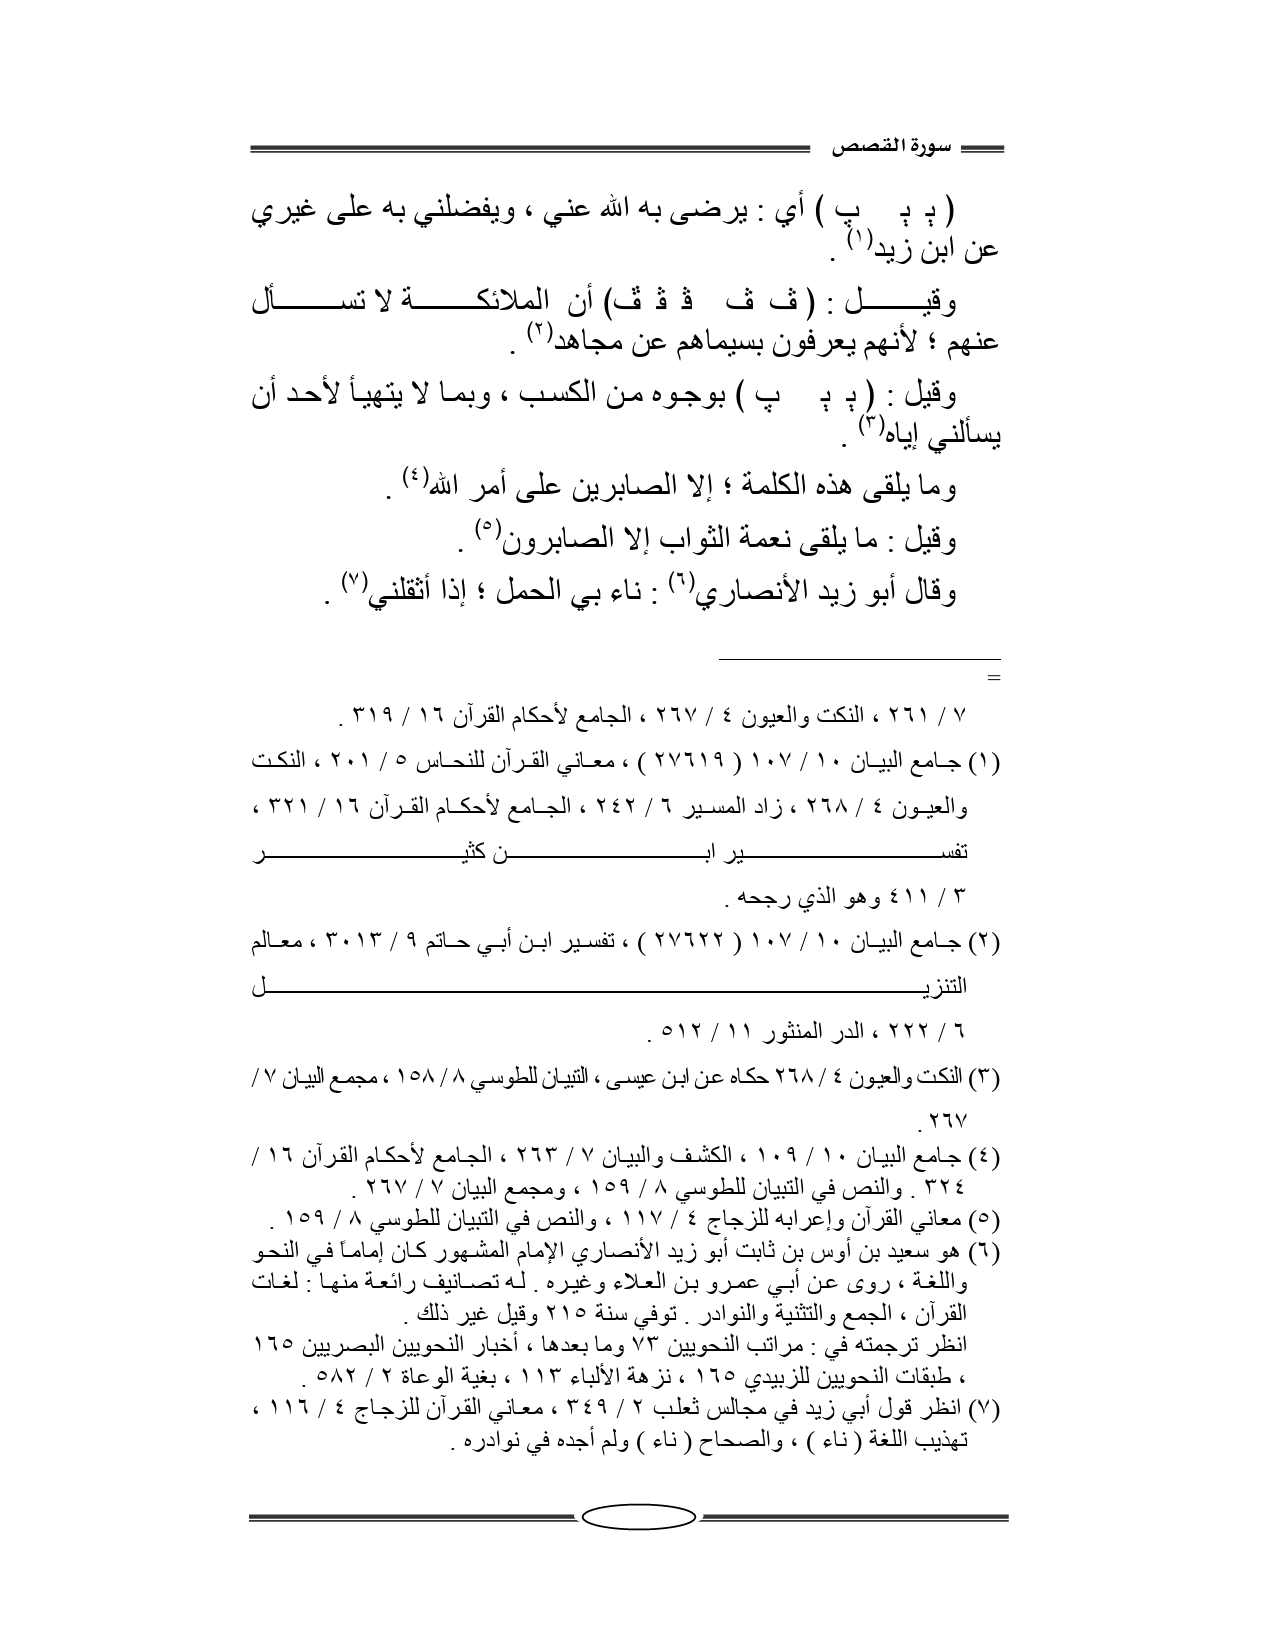 سورة القصص
( ﭕ ﭔ ﭖ ) أي : يرضى به الله عني ، ويفضلني به على غيري
عن ابن زيد(١) .
وقيل : ( ﭫ ﭬ ﭭ ﭮ ﭯ) أن الملائكة لا تسأل
عنهم ؛ لأنهم يعرفون بسيماهم عن مجاهد(٢) .
وقيل : ( ﭕ ﭔ ﭖ ) بوجوه من الكسب ، وبما لا يتهيأ لأحد أن
يسألني إياه(٣) .
وما يلقى هذه الكلمة ؛ إلا الصابرين على أمر الله(٤) .
وقيل : ما يلقى نعمة الثواب إلا الصابرون(٥) .
وقال أبو زيد الأنصاري(٦) : ناء بي الحمل ؛ إذا أثقلني(٧) .
=
٧ / ٢٦١ ، النكت والعيون ٤ / ٢٦٧ ، الجامع لأحكام القرآن ١٦ / ٣١٩ .
(١) جامع البيان ١٠ / ١٠٧ ( ٢٧٦١٩ ) ، معاني القرآن للنحاس ٥ / ٢٠١ ، النكت
والعيون ٤ / ٢٦٨ ، زاد المسير ٦ / ٢٤٢ ، الجامع لأحكام القرآن ١٦ / ٣٢١ ،
تفسير ابن كثير
٣ / ٤١١ وهو الذي رجحه .
(٢) جامع البيان ١٠ / ١٠٧ ( ٢٧٦٢٢ ) ، تفسير ابن أبي حاتم ٩ / ٣٠١٣ ، معالم
التنزيل
٦ / ٢٢٢ ، الدر المنثور ١١ / ٥١٢ .
(٣) النكت والعيون ٤ / ٢٦٨ حكاه عن ابن عيسى ، التبيان للطوسي ٨ / ١٥٨ ، مجمع البيان ٧ /
٢٦٧ .
(٤) جامع البيان ١٠ / ١٠٩ ، الكشف والبيان ٧ / ٢٦٣ ، الجامع لأحكام القرآن ١٦ /
٣٢٤ . والنص في التبيان للطوسي ٨ / ١٥٩ ، ومجمع البيان ٧ / ٢٦٧ .
(٥) معاني القرآن وإعرابه للزجاج ٤ / ١١٧ ، والنص في التبيان للطوسي ٨ / ١٥٩ .
(٦) هو سعيد بن أوس بن ثابت أبو زيد الأنصاري الإمام المشهور كان إماماً في النحو
واللغة ، روى عن أبي عمرو بن العلاء وغيره . له تصانيف رائعة منها : لغات
القرآن ، الجمع والتثنية والنوادر . توفي سنة ٢١٥ وقيل غير ذلك .
انظر ترجمته في : مراتب النحويين ٧٣ وما بعدها ، أخبار النحويين البصريين ١٦٥
، طبقات النحويين للزبيدي ١٦٥ ، نزهة الألباء ١١٣ ، بغية الوعاة ٢ / ٥٨٢ .
(٧) انظر قول أبي زيد في مجالس ثعلب ٢ / ٣٤٩ ، معاني القرآن للزجاج ٤ / ١١٦ ،
تهذيب اللغة ( ناء ) ، والصحاح ( ناء ) ولم أجده في نوادره .